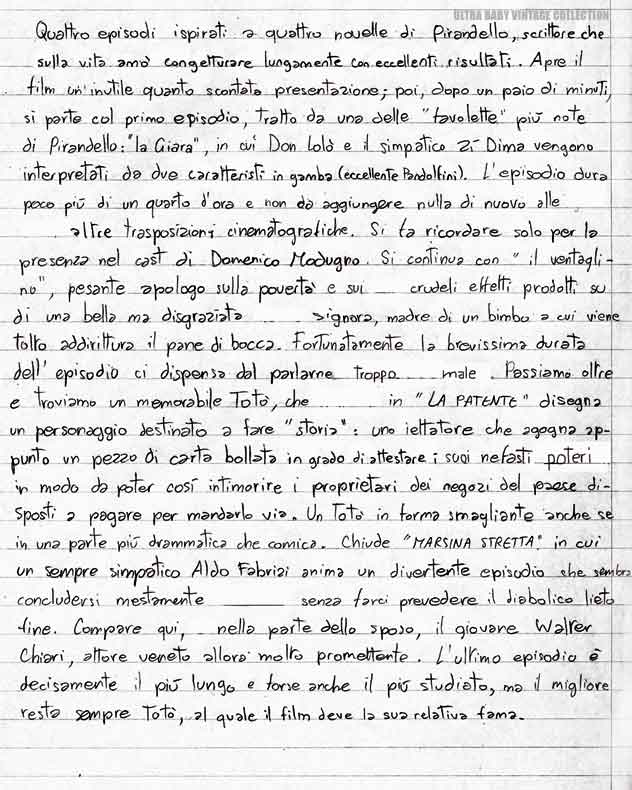 ULTRA BABY VINTAGE COLLECTION
Quattro episodi ispirati a quattro novelle di Pirandello, scrittore che
sulla vita amò congetturare lungamente con eccellenti risultati. Apre il
film un'inutile quanto scontata presentazione; poi, dopo un paio di minuti,
si parte col primo episodio, tratto da una delle "favolette" più note
di Pirandello: "la Giara", in cui Don Lolò e il simpatico Zì Dima vengono
interpretati da due caratteristi in gamba (eccellente Pandolfini). L'episodio dura
poco più di un quarto d'ora e non dà aggiungere nulla di nuovo alle
altre trasposizioni cinematografiche. Si fa ricordare solo per la
presenza nel cast di Domenico Modugno. Si continua con "il ventagli-
no", pesante apologo sulla povertà e sui crudeli effetti prodotti su
di una bella ma disgraziata signora, madre di un bimbo a cui viene
tolto addirittura il pane di bocca. Fortunatamente la brevissima durata
dell'episodio ci dispensa dal parlarne troppo male. Passiamo oltre
e troviamo un memorabile Totò, che in "LA PATENTE" disegna
un personaggio destinato a fare "storia": uno iettatore che agogna ap-
punto un pezzo di carta bollata in grado di attestare i suoi nefasti poteri
in modo da poter così intimorire i proprietari dei negozi del paese di-
sposti a pagare per mandarlo via. Un Totò in forma smagliante anche se
in una parte più drammatica che comica. Chiude "MARSINA STRETTA" in cui
un sempre simpatico Aldo Fabrizi anima un divertente episodio che sembra
concludersi mestamente senza farci prevedere il diabolico lieto
fine. Compare qui, nella parte dello sposo, il giovane Walter
Chiari, attore veneto allora molto promettente. L'ultimo episodio è
decisamente il più lungo e forse anche il più studiato, ma il migliore
resta sempre Totò, al quale il film deve la sua relativa fama.